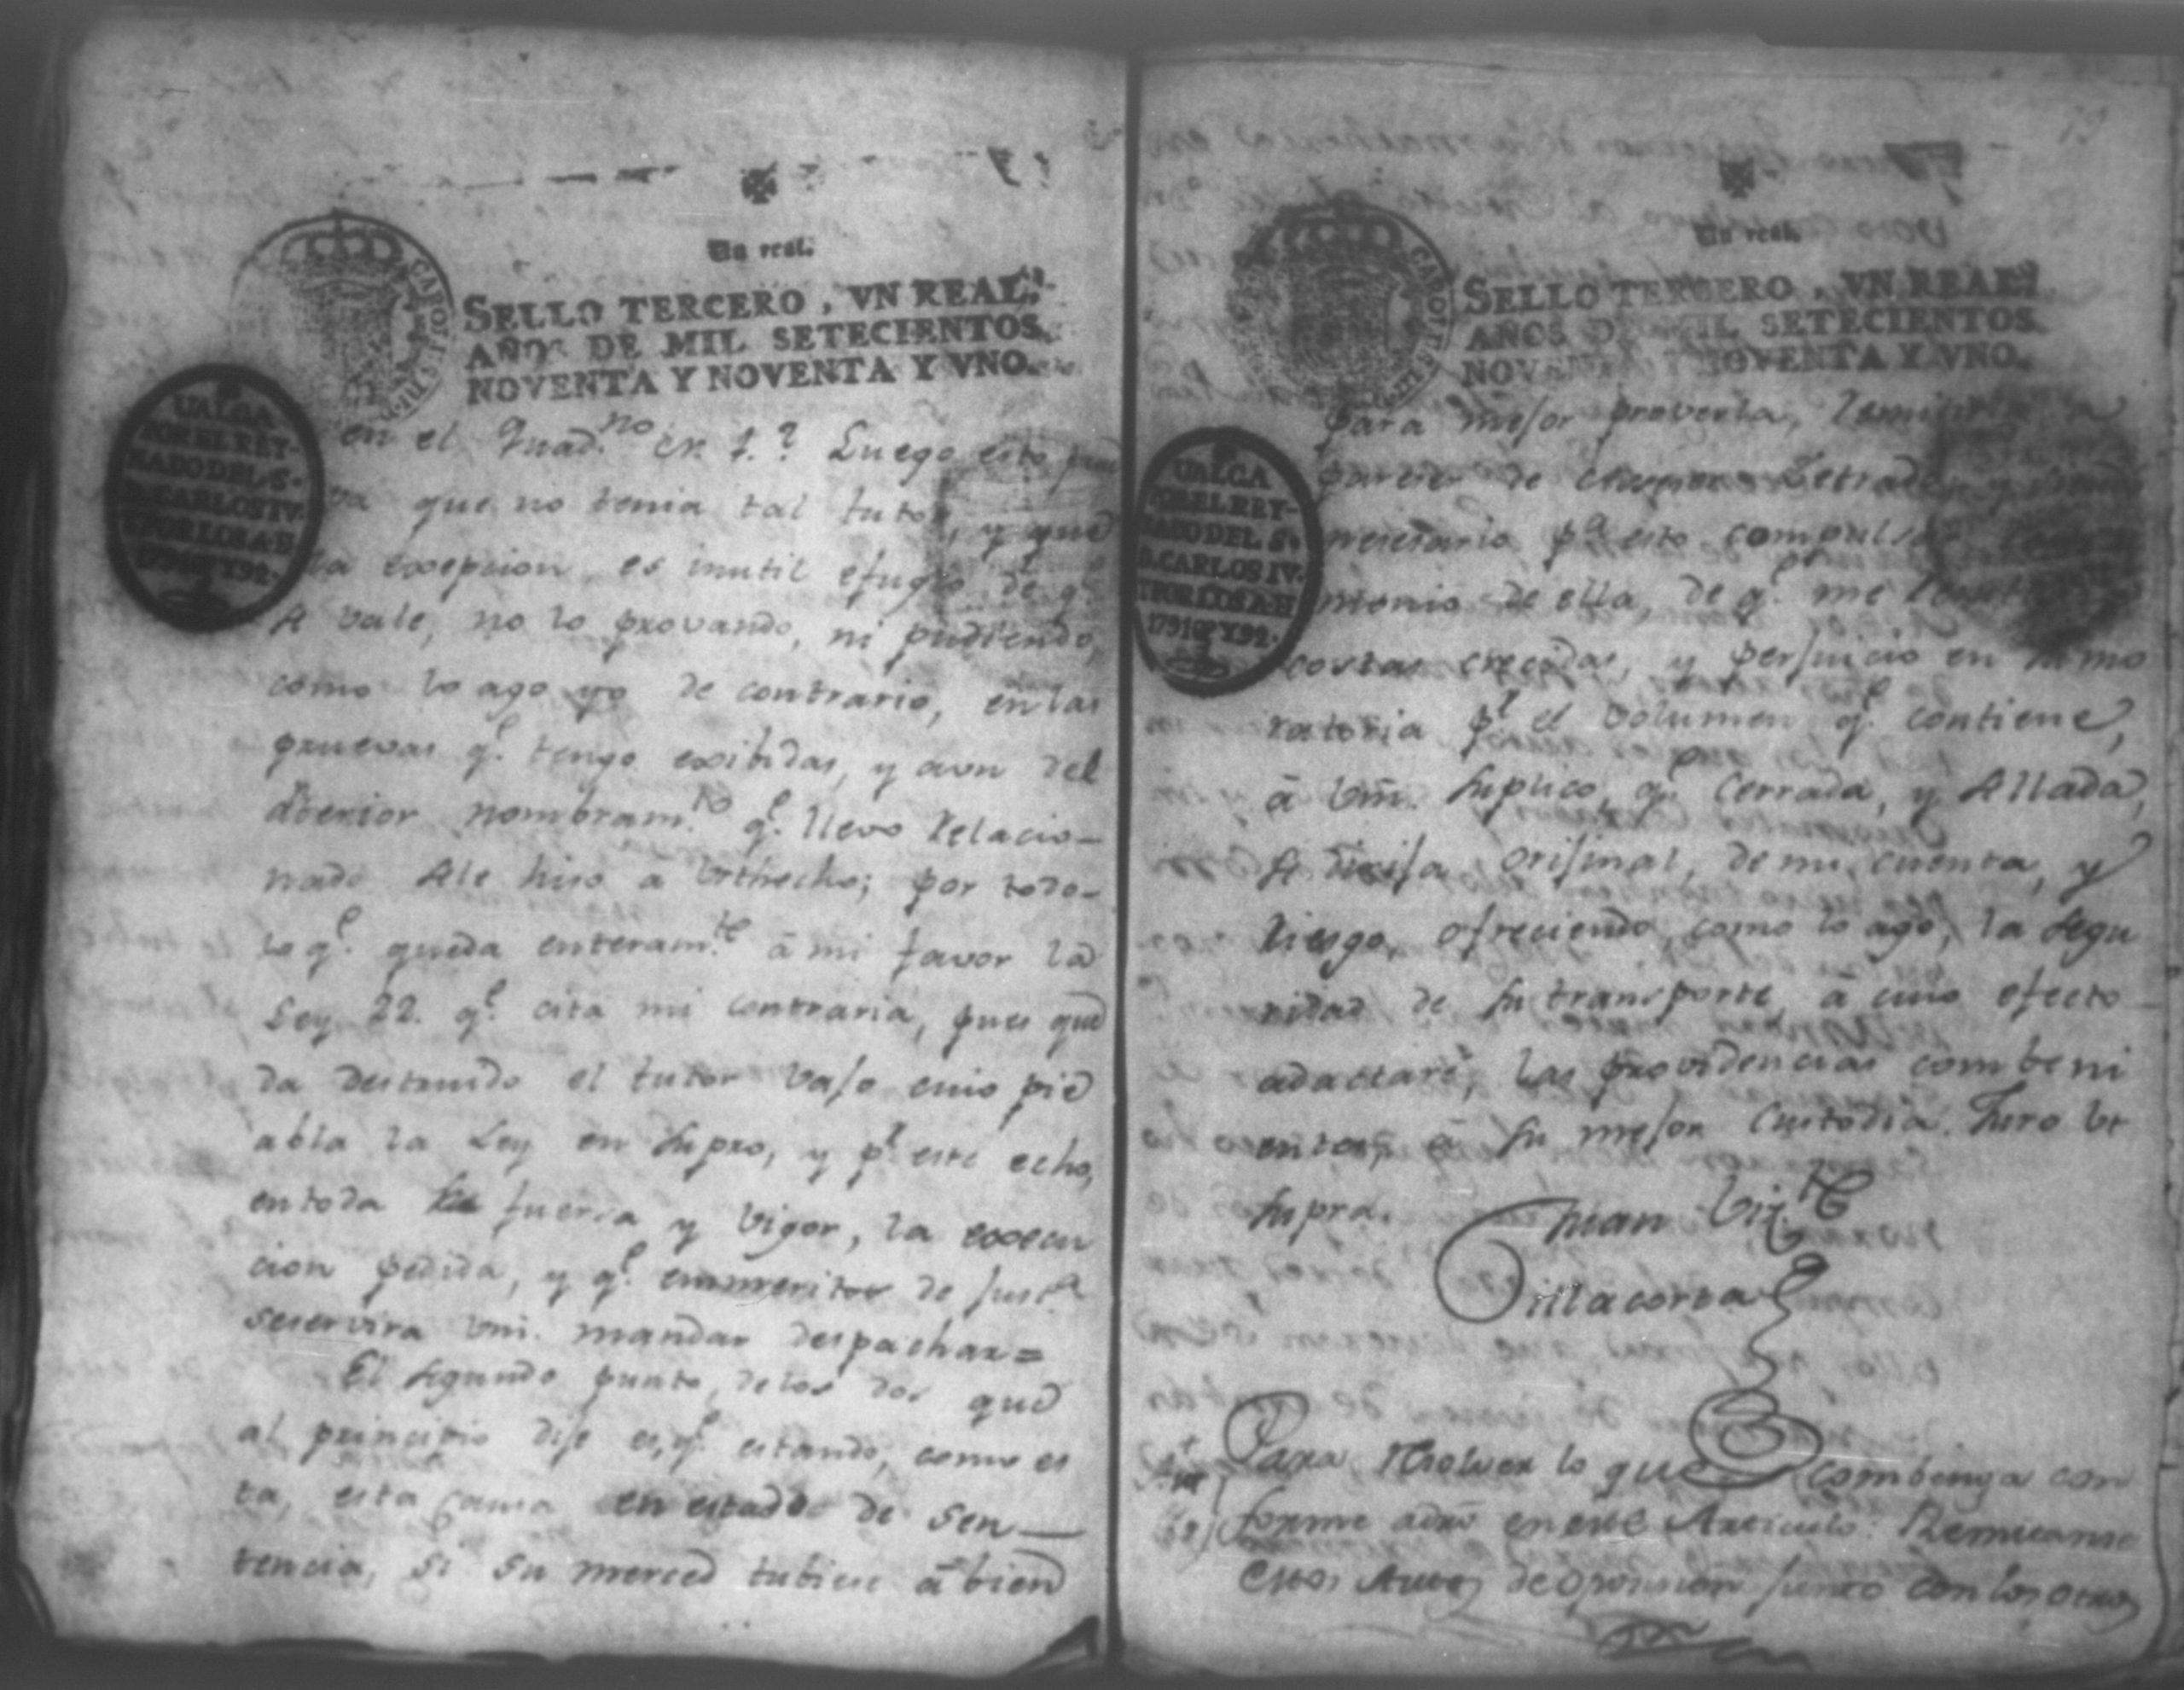 Un real.
SELLO TERCERO, VN REAL.
AÑOS DE MIL SETECIENTOS
NOVENTA Y NOVENTA Y VNO.
CAROLUS IV
VALGA
POR EL REY-
NADO DEL S.
D. CARLOS IV.
Y POR LOS A.D
1791 Y 92.
en el Quad.no Cr. 1.º Luego esto
que no tenia tal tutor, y que
la exepcion es inutil efugio de q.e
se vale, no lo provando, ni pudiendo,
como lo ago yo de contrario, en las
pruevas q.e tengo exibidas, y aun del
nombram.to q.e llevo relacio-
nado se le hiso a Urthecho; por todo-
lo q.e queda enteram.te â mi favor la
Ley 22. q.e cita mi contraria, pues que
da destruido el tutor vajo cuio pie
abla la Ley en supro, y p.r este echo,
en toda su fuersa y vigor, la execu
cion pedida, y q.e en meritos de just.a
se servira vm. mandar despachar =
El segundo punto, de los dos que
al principio dije es, q.e estando, como es
ta, esta causa en estado de sen—
tencia, si su merced tubiese â bien
79
Un real.
SELLO TERCERO, VN REAL.
AÑOS DE MIL SETECIENTOS
NOVENTA Y NOVENTA Y VNO.
VALGA
POR EL REY-
NADO DEL S.
D. CARLOS IV.
Y POR LOS A.D
1791 Y 92.
para mejor proveerla,
parecer de Letrado, y
nesesario p.a esto compulsar
monio de ella, de q.e me
costas crecidas, y perjuicio en la mo
ratoria p.r el volumen q.e contiene,
â Vm. suplico, q.e cerrada, y sellada,
se dirija orijinal, de mi cuenta, y
riesgo, ofreciendo, como lo ago, la segu
ridad de su transporte, â cuio efecto
adactaré, las providencias combeni
entes, â su mejor custodia. Juro ut
supra.
Juan Viz.te
Villacorta
Para resolver lo que combenga con
forme a dro en este Articulo: Remitanse
estos Autos de oposicion junto con los otros